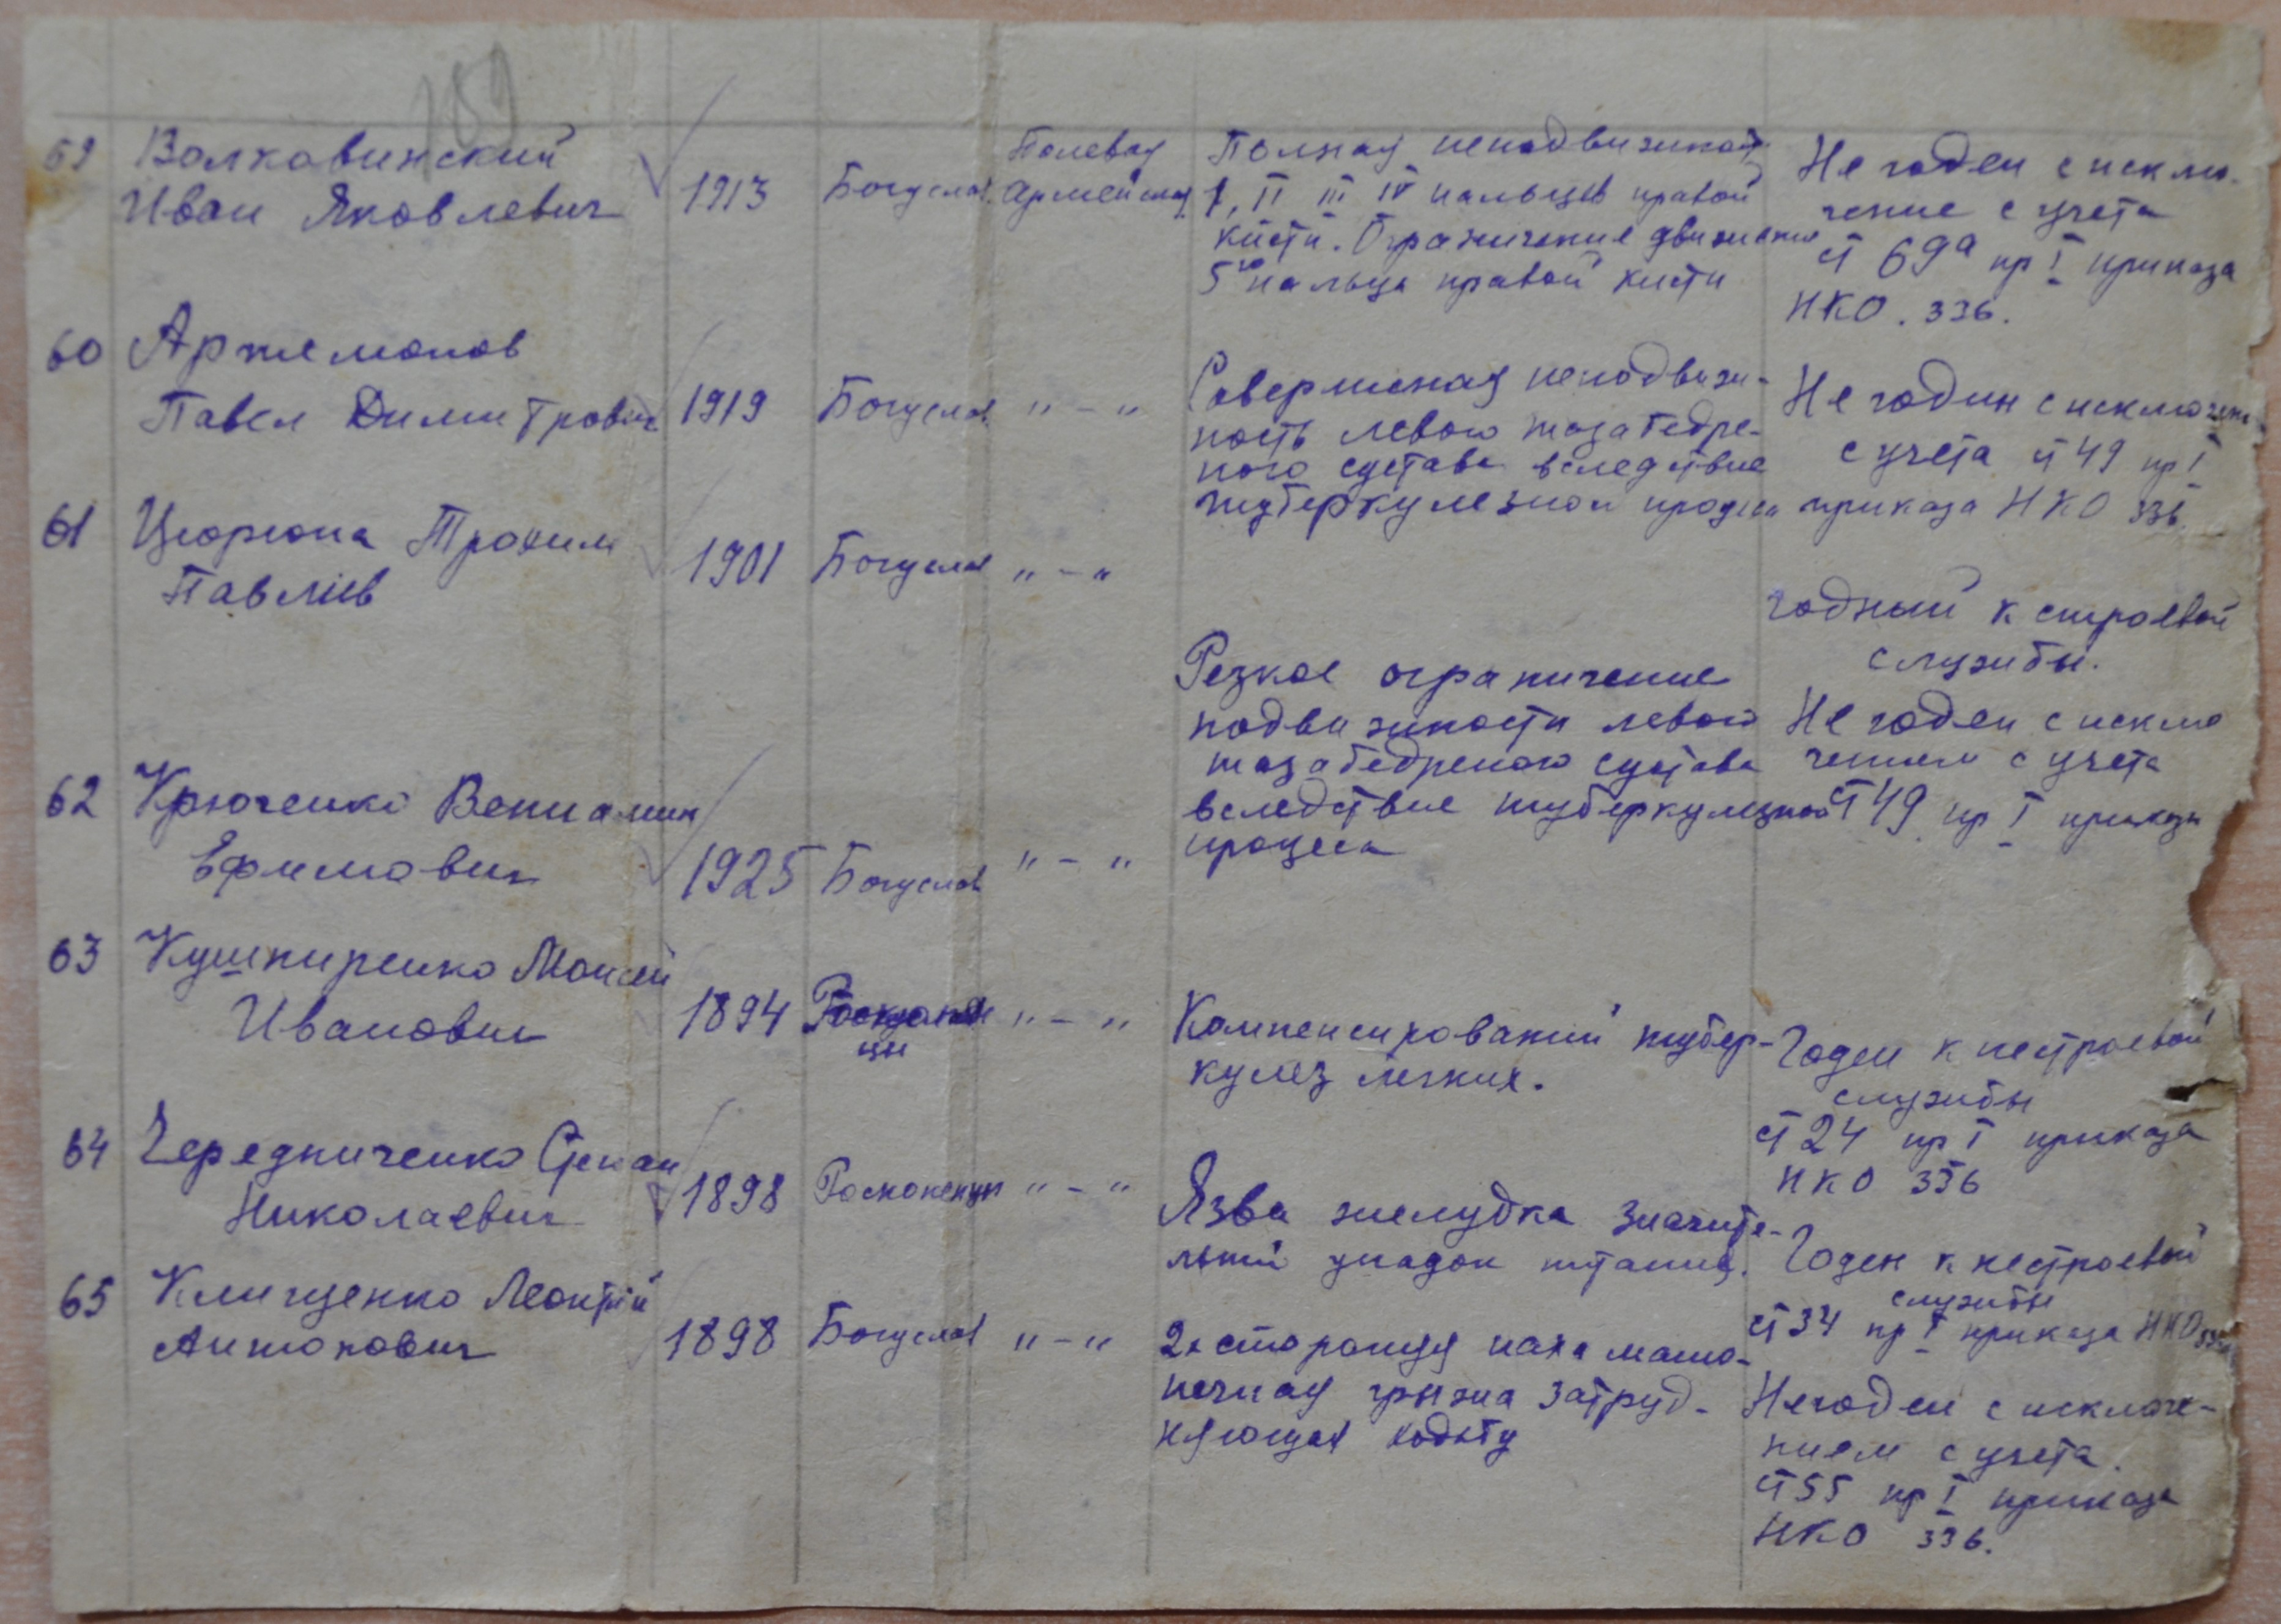 189
59 Волковинский
Иван Яковлевич
1913
Богуслав
Полевая
Армейская
Полная неподвижность
I, II III IV пальцев правой
кисти. Ограничение движения
5го пальца правой кисти
Не годен с исклю-
чение с учета
ст 69а пр I приказа
НКО. 336.
60 Артемонов
Павел Димитрович
1919
Богуслав
" - "
Совершенная неподвиж-
ность левого тазабедре-
ного сустава вследствие
туберкулезной процеса
Не годин с исключен
с учета ст 49 пр I
приказа НКО 336.
61 Цюрюпа Трохим
Павлiев
1901
Богуслав
" - "
годный к строевой
службы.
62 Крюченко Вениамин
Ефимович
1925
Богуслав
" - "
Резкое ограничение
подвижности левого
тазабедреного сустава
вследствие туберкулезной
процеса
Не годен с исклю
чением с учета
ст 49 пр I приказа
63 Кушниренко Моисей
Иванович
1894
цы
" - "
Компенсирований тубер-
кулез легких.
Годен к нестроевой
службы
ст 24 пр I приказа
НКО 336
64 Чередниченко Степан
Николаевич
1898
" - "
Язва желудка значите-
льний упадок питания.
Годен к нестроевой
службы
ст 34 пр I приказа НКО 336
65 Клищенко Леонтий
Антонович
1898
Богуслав
" - "
2х сторонняя паха машо-
ночная грыжа затруд-
няющая ходьбу
Негоден с исключе-
нием с учета.
ст 55 пр I приказа
НКО 336.